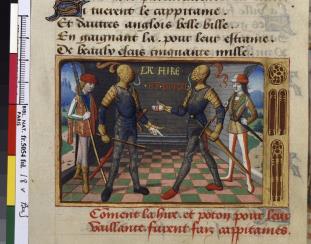 tuerent le capitaine
Et dautres anglois belle bille.
En gaignant la. pour leur estraine.
De beaulx escus cinquante mille.
LA HIRE
Cõment la hire. et poton pour leur
vaillance. furent faiz capitaines.
BIBL. NAT.
PARIS
fr. 5054 fol. 18 v